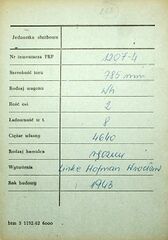 Jednostka służbowa
Nr inwentarza PKP 1207-4
Szerokość toru 785 mm
Rodzaj wagonu Wh
Ilość osi 2
Ładowność w t 8
Ciężar własny 4640
Rodzaj hamulca ręczny
Wytwórnia Linke Hofman Wrocław
Rok budowy 1943
btm 3 1152-62 6000